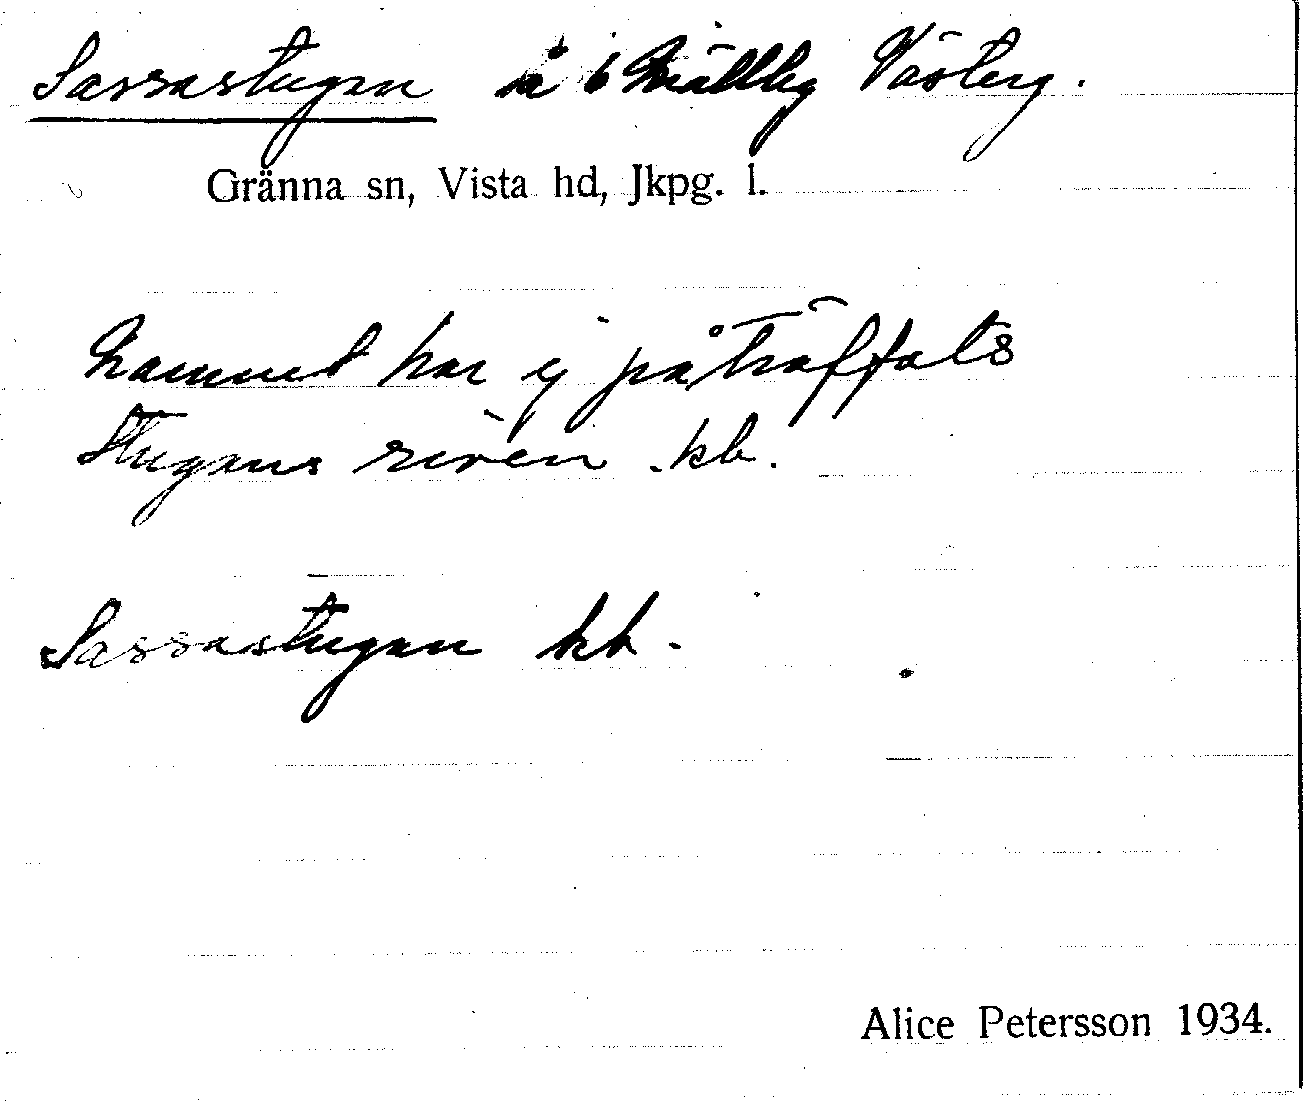 Sassastugan å Västerg.
Gränna sn, Vista hd, Jkpg. l.
Namnet har ej påträffats
Stugans riven . kb.
Sassastugan kb.
Alice Petersson 1934.